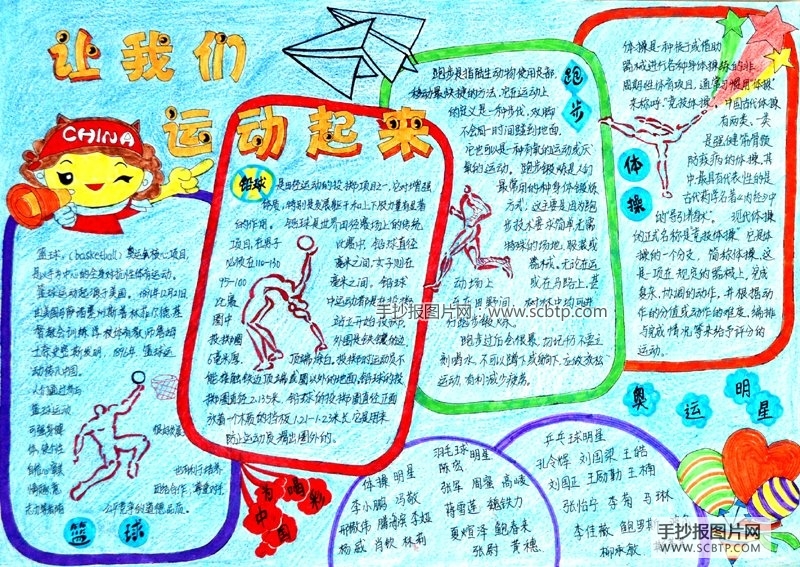 让我们
运动起来
CHINA
篮球，（basketball）奥运会核心项目，
是以手为中心的全身对抗性体育运动。
篮球运动起源于美国。1891年12月21日
由美国马萨诸塞州斯普林菲尔德基
督教会训练学校体育教师詹姆
士
动传入中国。
人们通过参与
篮球运动
公平竞争的道德品质。
篮球
铅球
是田径运动的投掷项目之一，它对增强
体质，特别是发展躯干和上下肢力量有显著
的作用。铅球是世界田径赛场上的传统
项目，在男子
比赛中，铅球直径
应在110-130
毫米之间，女子则在
95-100
毫米之间，铅球
比赛
中运动员
圈中
投掷圈
外圈是铁镶的边，
6毫米厚，
顶端涂白。投掷的运动员不
能接触铁边顶端或圈以外的地面，铅球的投
掷圈直径2.135米，铅球的投掷圈直径正面
放着一个木质的挡板1.21-1.22米长，它是用来
防止运动员滑出圈外的。
为中国
喝彩
跑步
跑步是指陆生动物使用足部，
移动最快捷的方法。它在运动上
的定义是一种步伐，双脚
不会同一时间碰到地面。
它也可以是一种有氧的运动或厌
氧的运动。跑步锻炼是人们
最常用的一种身体锻炼
方式，这主要是因为跑
步技术要求简单，无需
特殊的场地，服装或
器械。无论在运
动场上
或在马路上，甚
跑步过后会很累，勿记仍不要立
刻喝水，不可以蹲下或躺下，应放放松
运动，有利减少疲劳。
体操
体操是一种徒手或借助
器械进行各种身体操练的非
周期性体育项目，通常习惯用"体操"
来称呼"竞技体操"。中国古代体操
有两类，一类
是强健筋骨预
防疾病的体操，其
中最具有代表性的是
古代药库名著《内经》中
的"导引养生"。现代体操
的正式名称是"竞技体操"。它是体
操的一个分支，简称体操，这
是一项在规定的器械上，完成
复杂、协调的动作，并根据动
作的分值或动作的难度，编排
与完成情况等来给予评分的
运动。
奥运明星
体操明星
李小鹏 冯敬
邢傲伟 滕海滨 李娅
杨威 肖钦 林莉
羽毛球明星
陈宏
张军 周蜜 高崚
蒋雪莲 魏铁力
夏煊泽 鲍春来
张尉 黄穗
乒乓球明星
孔令辉 刘国梁 王皓
刘国正 王励勤 王楠
张怡宁 李菊 马琳
李佳薇
柳承敏
手抄报图片网 - www.scbtp.com
手抄报图片网
WWW.SCBTP.COM